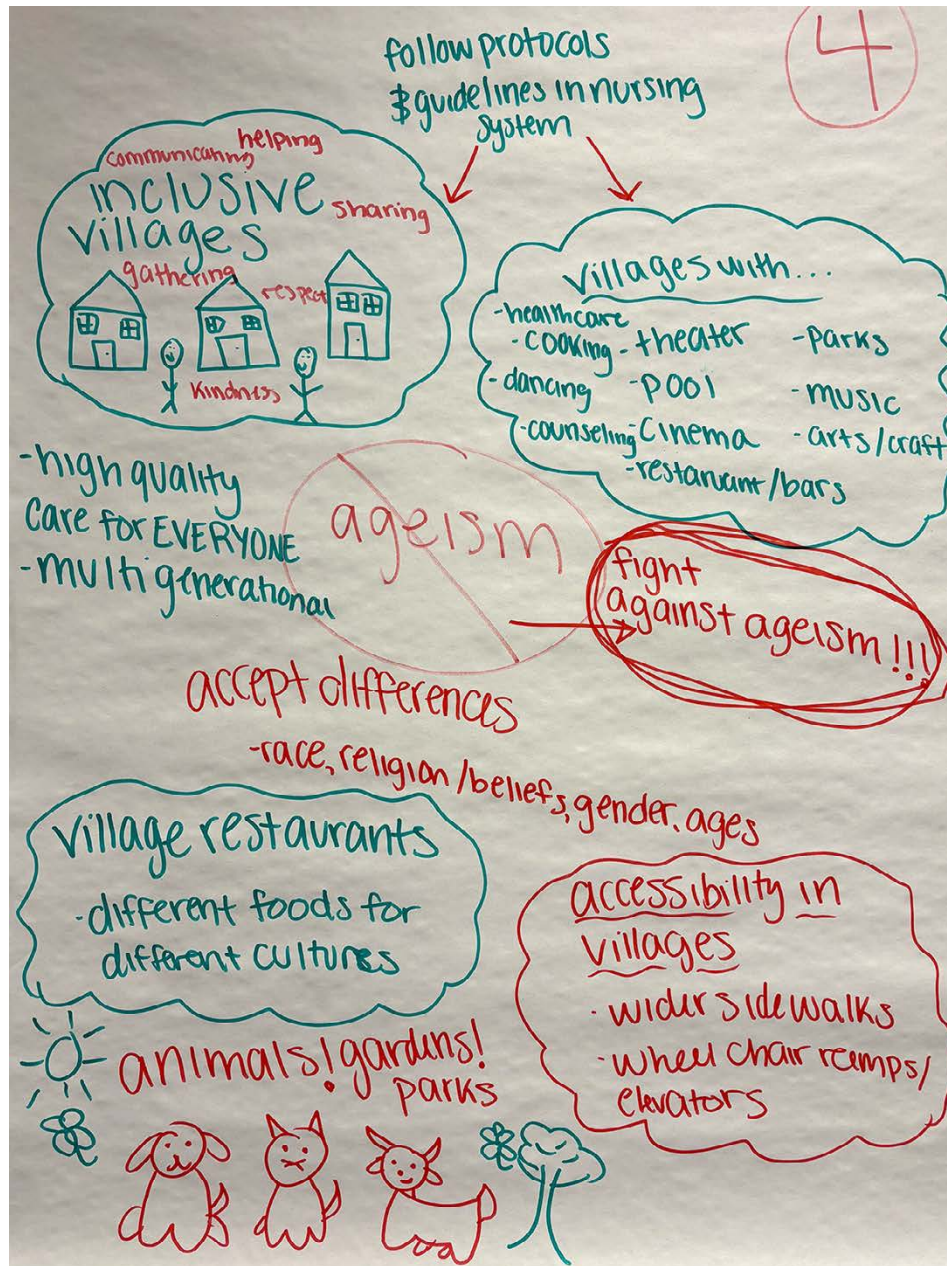 4
follow protocols
& guidelines in nursing
system
helping
communicating
inclusive
sharing
villages
gathering
respect
kindness
villages with...
-healthcare
- cooking
- dancing
- counseling
- theater
- pool
- cinema
- restaruant/bars
- parks
- music
- arts/craft
-high quality
care for EVERYONE
-multigenerational
ageism
fight
against ageism!!!
accept differences
-race, religion/beliefs, gender. ages
village restaurants
- different foods for
different cultures
accessibility in
villages
· wider sidewalks
· wheel chair ramps/
elevators
animals! gardens!
parks